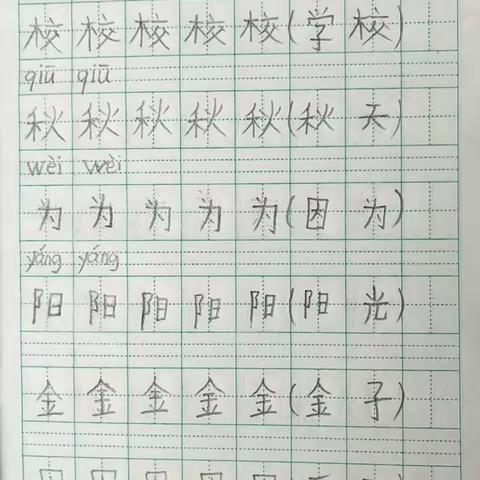 校 校 校 校 校 (学 校)
qiū qiū
秋 秋 秋 秋 秋 (秋 天)
wèi wèi
为 为 为 为 为 (因 为)
yáng yáng
阳 阳 阳 阳 阳 (阳 光)
金 金 金 金 金 (金 子)